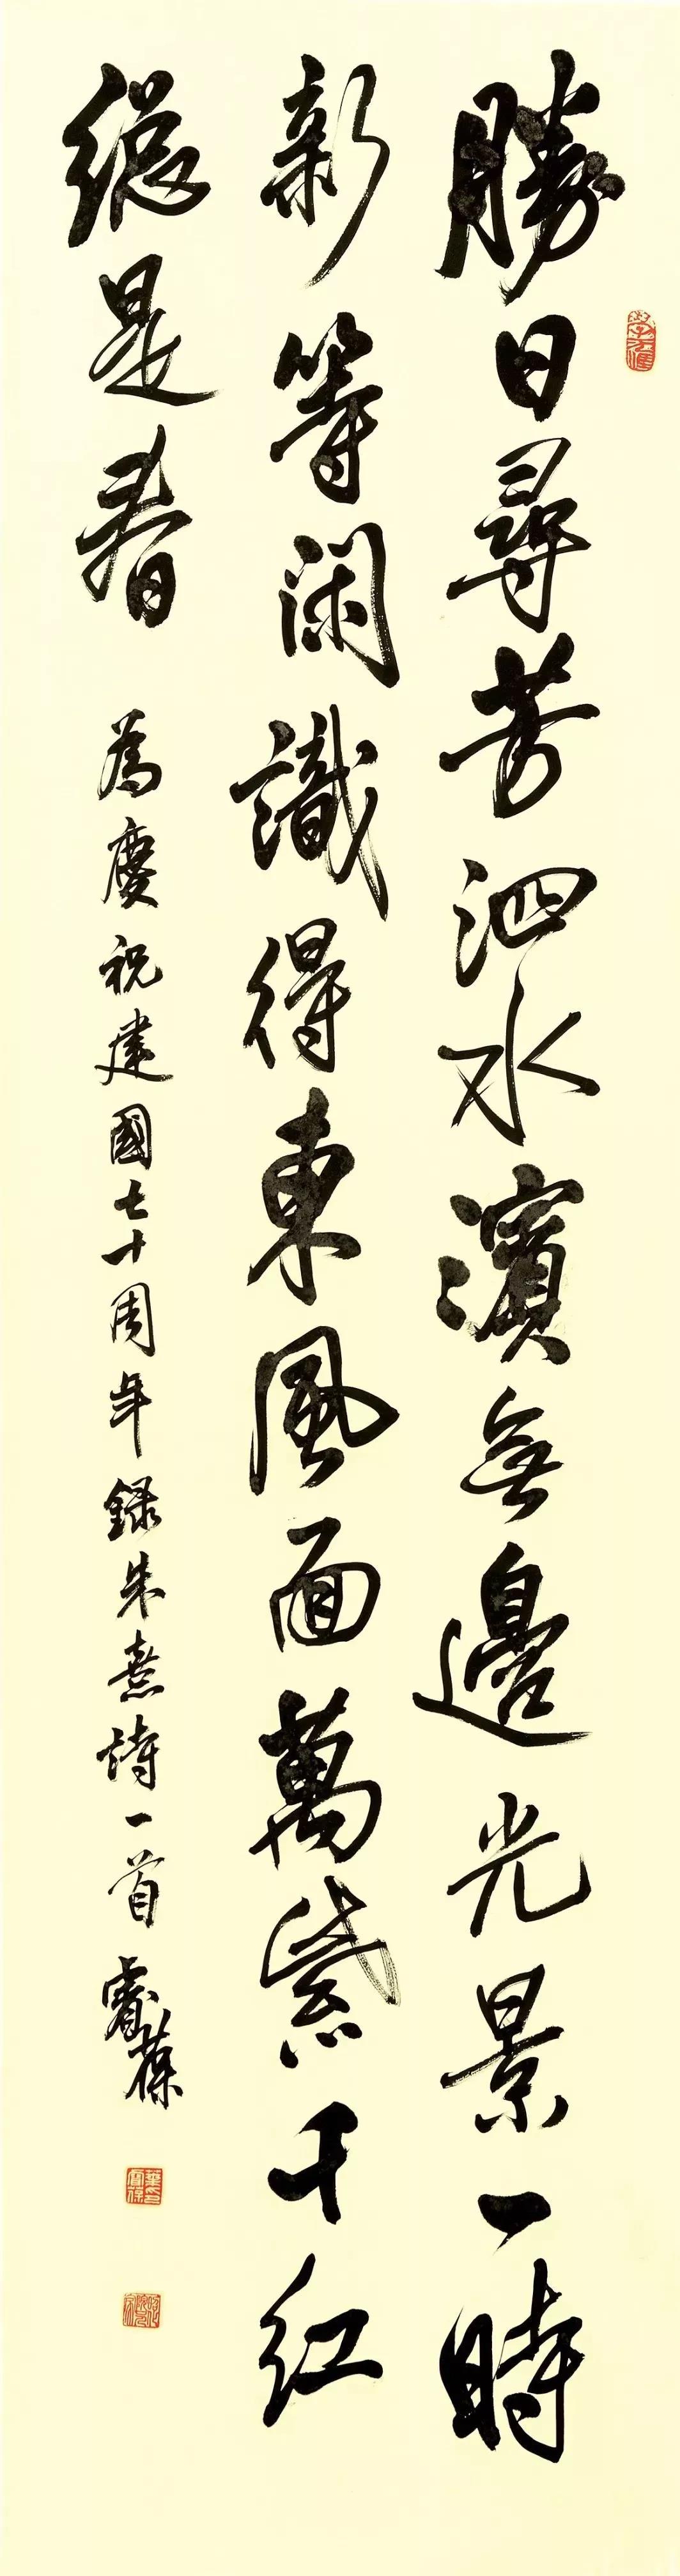 勝日尋芳泗水濱無邊光景一時
新等闲識得東風面萬紫千红
總是春 為慶祝建國七十周年錄朱熹詩一首 睿葆